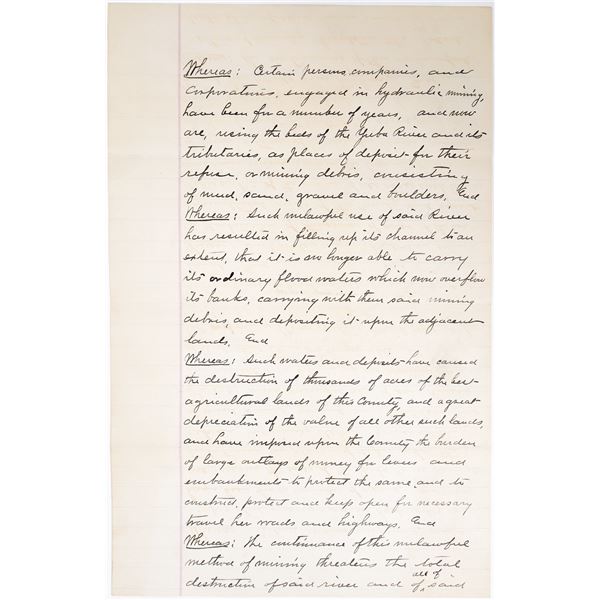 Whereas: Certain persons, companies, and
corporations, engaged in hydraulic mining,
have been for a number of years, and now
are, using the beds of the Yuba River and its
tributaries, as places of deposit for their
refuse, or mining debris, consisting
of mud, sand, gravel and boulders, And
Whereas: Such unlawful use of said River
has resulted in filling up its channel to an
extent, that it is no longer able to carry
its ordinary flood waters which now overflow
its banks, carrying with them said mining
debris, and depositing it upon the adjacent
lands. And
Whereas: Such waters and deposits have caused
the destruction of thousands of acres of the best
agricultural lands of this County, and a great
depreciation of the value of all other such lands,
and have imposed upon the County the burden
of large outlays of money for levees and
embankments to protect the same, and to
construct, protect and keep open for necessary
travel her roads and highways. And
Whereas: The continuance of this unlawful
method of mining threatens the total
destruction of said river and all of said